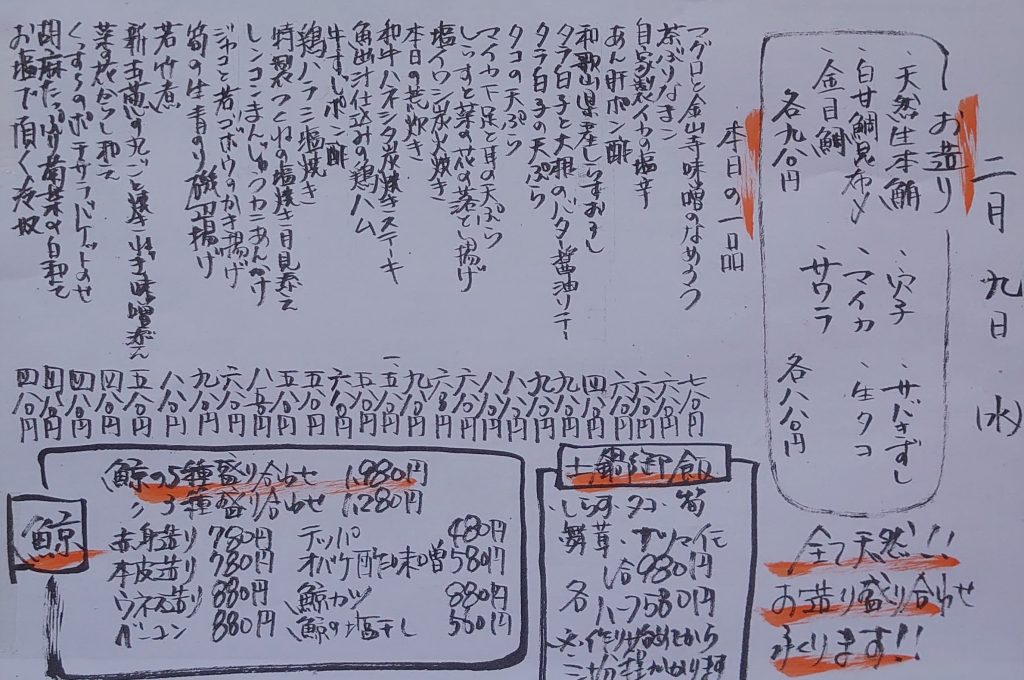 二月九日(水)
お造り
・天然生本鮪
・白甘鯛昆布〆
・金目鯛
各九八〇円
・穴子
・マイカ
・サワラ
・サバきずし
・生タコ
各八八〇円
全て天然!!
お造り盛り合わせ
承ります!!
本日の一品
マグロと金山寺味噌のなめろう 七八〇円
茶ぶりなまこ 六八〇円
自家製イカの塩辛 六八〇円
あん肝ポン酢 六八〇円
和歌山県産しらすおろし 四八〇円
タラ白子と大根のバター醤油ソテー 九八〇円
タラ白子の天ぷら 九八〇円
タコの天ぷら 八八〇円
マイカ下足と耳の天ぷら 八八〇円
しらすと菜の花の落とし揚げ 六八〇円
塩イワシ炭火焼き 六八〇円
本日の荒炊き 九八〇円
和牛ハネシタ炭焼きステーキ 一、五八〇円
魚出汁仕込みの鶏ハム 五八〇円
牛すじポン酢 六八〇円
鶏ハラミ塩焼き 五八〇円
特製つくねの塩焼き月見添え 五八〇円
レンコンまんじゅうカニあんかけ 八五〇円
ジャコと若ゴボウのかき揚げ 六八〇円
筍の生青のり磯辺揚げ 九八〇円
若竹煮 八八〇円
新玉葱の丸ごと焼き 味噌添え 五八〇円
菜の花からし和え 四八〇円
くっすらのポテサラバケットのせ 四八〇円
胡麻たっぷり菊菜の白和え 四八〇円
お塩で頂く冷奴 四八〇円
土鍋御飯
しらす・タコ・筍
舞茸・
一合980円
各
ハーフ580円
※作り始めてから
三十分程かかります
鯨
鯨の5種盛り合わせ 1,880円
〃3種盛り合わせ 1,280円
赤身造り 780円
本皮造り 780円
ウネス造り 880円
ベーコン 880円
テッパ 480円
オバケ酢味噌 580円
鯨カツ 880円
鯨の塩干し 560円